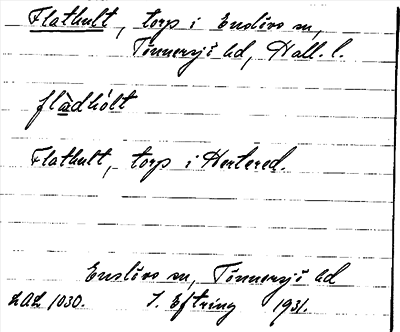 Flathult, torp i Enslövs sn,
Tönnersjö hd, Hall. l.
flàdhólt
Flathult, torp i Hertered.
Enslövs sn, Tönnersjö hd
LAL 1030. J. Eftring 1931.